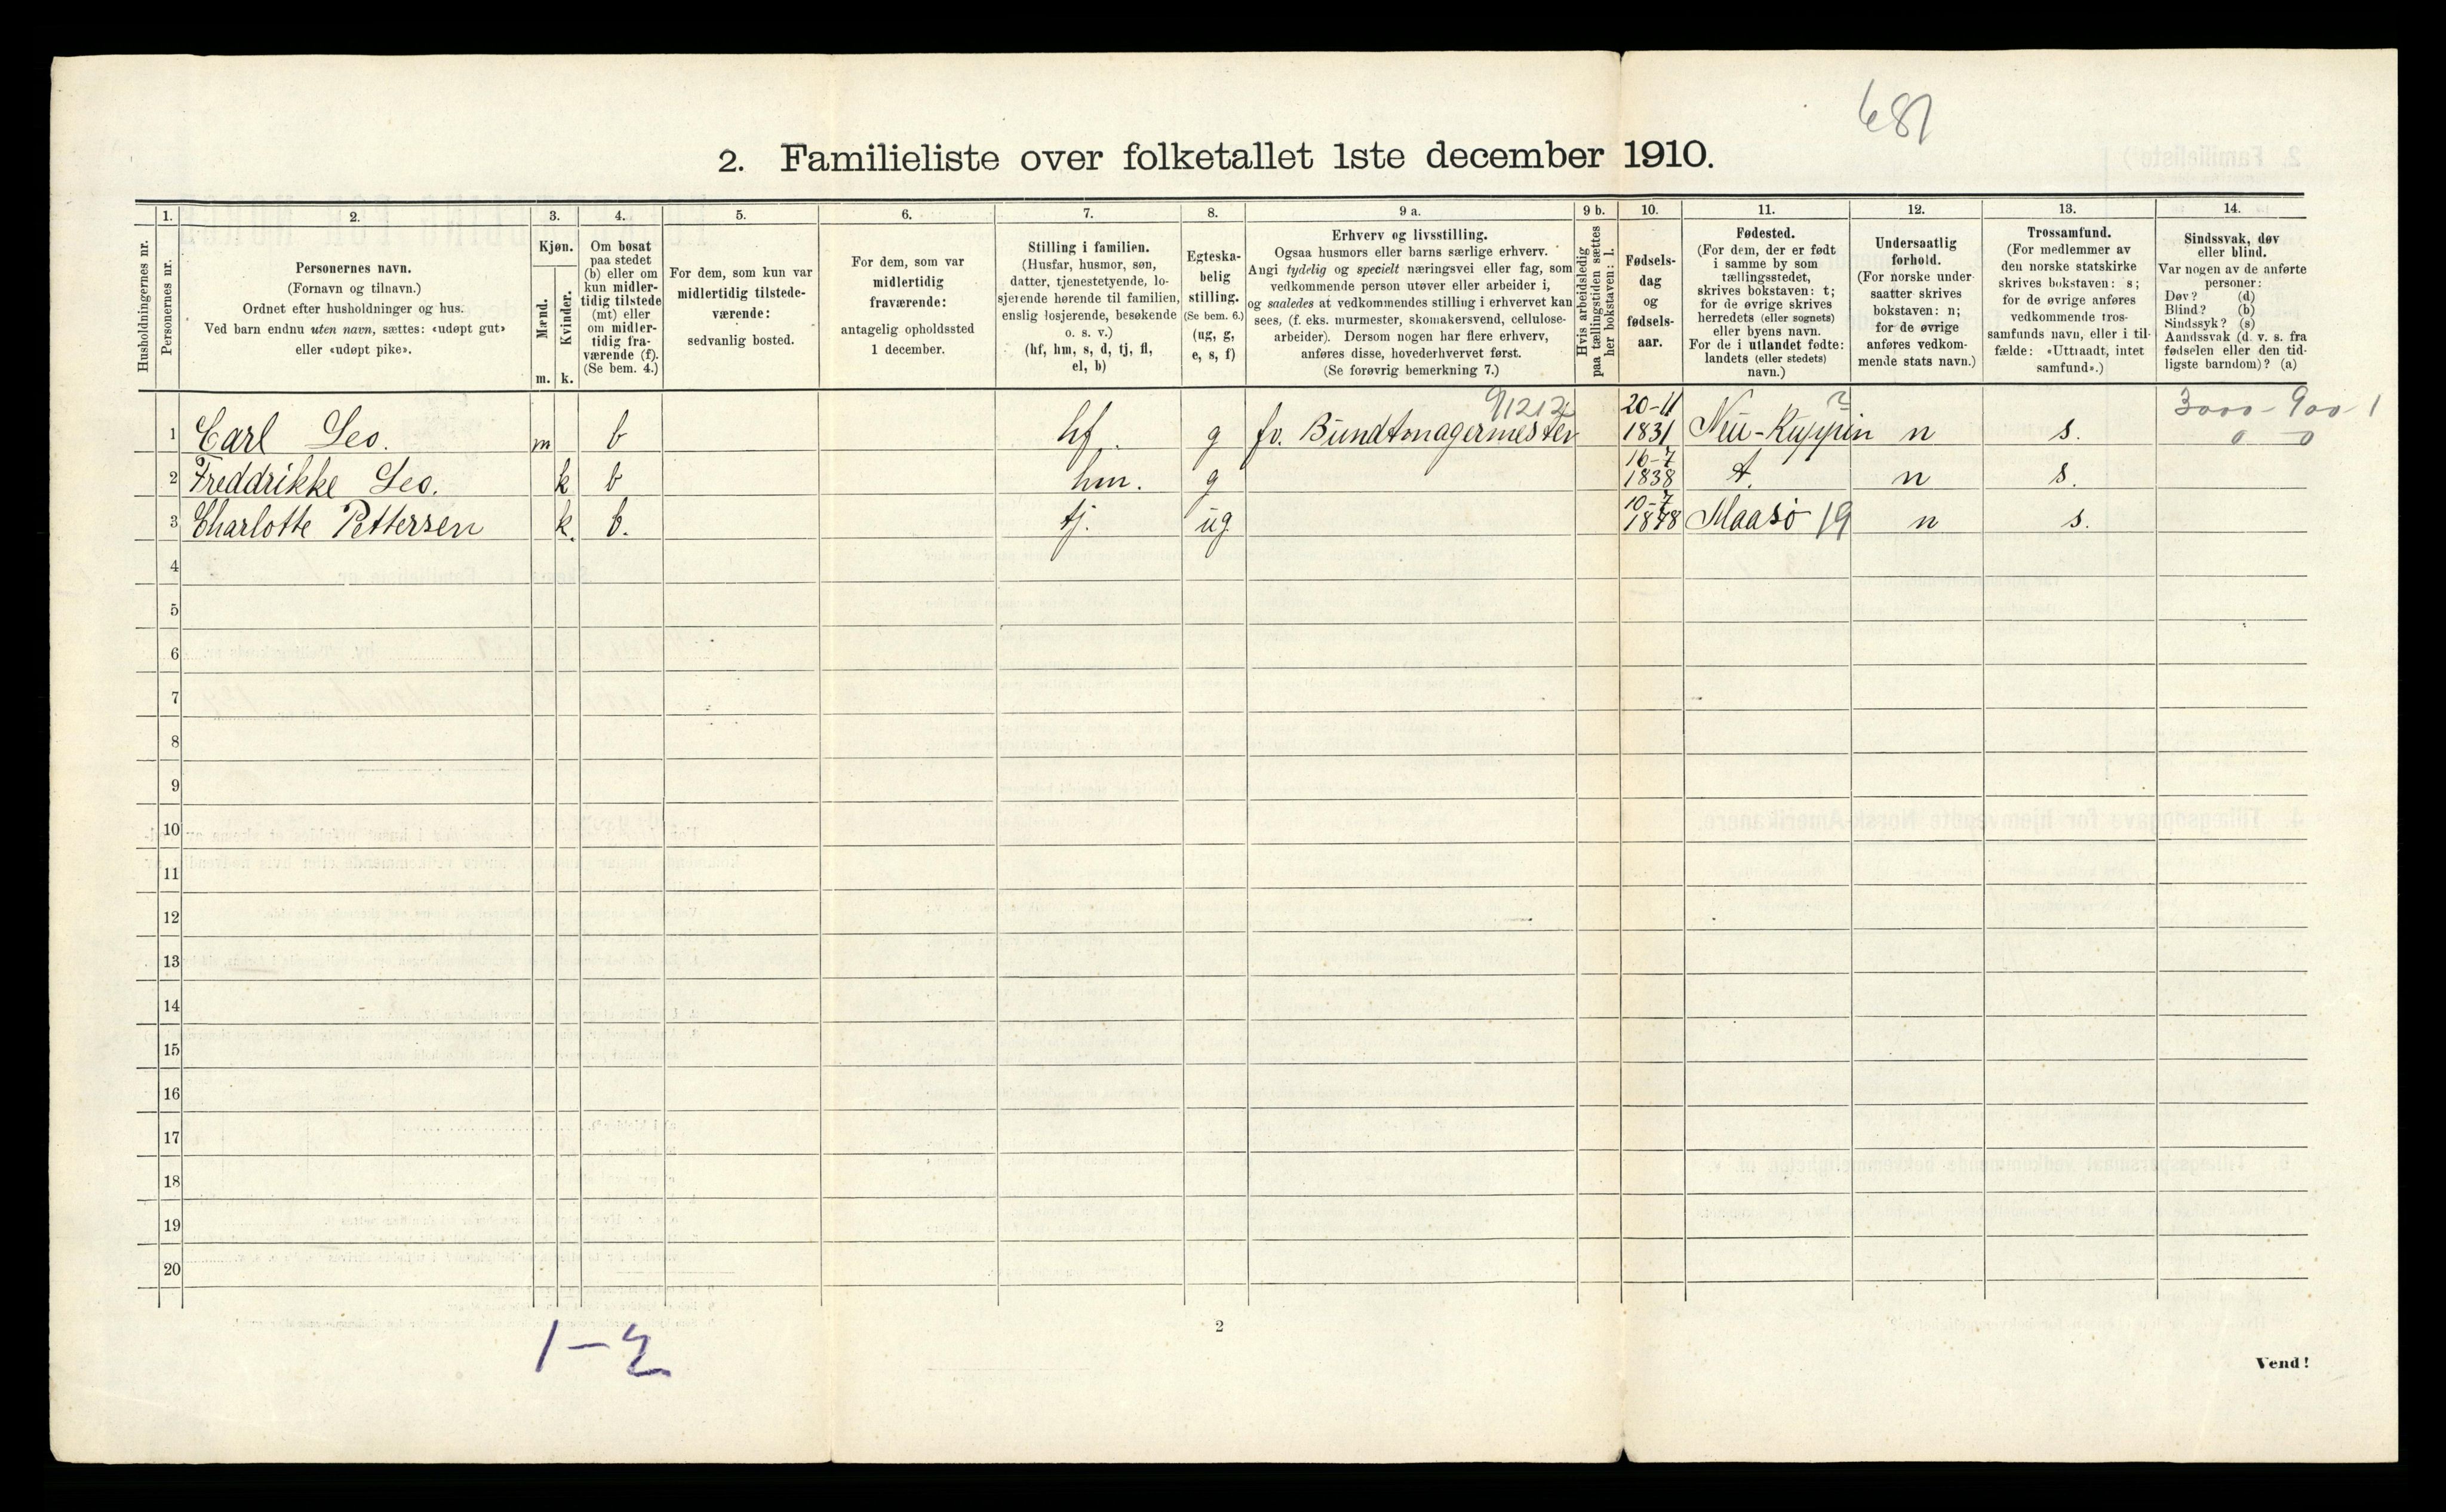 681
2. Familieliste over folketallet 1ste december 1910.
Husholdningernes nr.
1.
Personernes nr.
2.
Personernes navn.
(Fornavn og tilnavn.)
Ordnet efter husholdninger og hus.
Ved barn endnu uten navn, sættes: «udøpt gut»
eller «udøpt pike».
3.
Kjøn.
Mænd.
m.
Kvinder.
k.
4.
Om bosat
paa stedet
(b) eller om
kun midler-
tidig tilstede
(mt) eller
om midler-
tidig fra-
værende (f).
(Se bem. 4.)
5.
For dem, som kun var
midlertidig tilstede-
værende:
sedvanlig bosted.
6.
For dem, som var
midlertidig
fraværende:
antagelig opholdssted
1 december.
7.
Stilling i familien.
(Husfar, husmor, søn,
datter, tjenestetyende, lo-
sjerende hørende til familien,
enslig losjerende, besøkende
o. s. v.)
(hf, hm, s, d, tj, fl,
el, b)
8.
Egteska-
belig
stilling.
(Se bem. 6.)
(ug, g,
e, s, f)
9 a.
Erhverv og livsstilling.
Ogsaa husmors eller barns særlige erhverv.
Angi tydelig og specielt næringsvei eller fag, som
vedkommende person utøver eller arbeider i,
og saaledes at vedkommendes stilling i erhvervet kan
sees, (f. eks. murmester, skomakersvend, cellulose-
arbeider). Dersom nogen har flere erhverv,
anføres disse, hovederhvervet først.
(Se forøvrig bemerkning 7.)
9 b.
Hvis arbeidsledig
paa tællingstiden sættes
her bokstaven: l.
10.
Fødsels-
dag
og
fødsels-
aar.
11.
Fødested.
(For dem, der er født
i samme by som
tællingsstedet,
skrives bokstaven: t;
for de øvrige skrives
herredets (eller sognets)
eller byens navn.
For de i utlandet fødte:
landets (eller stedets)
navn.)
12.
Undersaatlig
forhold.
(For norske under-
saatter skrives
bokstaven: n;
for de øvrige
anføres vedkom-
mende stats navn.)
13.
Trossamfund.
(For medlemmer av
den norske statskirke
skrives bokstaven: s;
for de øvrige anføres
vedkommende tros-
samfunds navn, eller i til-
fælde: «Uttraadt, intet
samfund».)
14.
Sindssvak, døv
eller blind.
Var nogen av de anførte
personer:
Døv? (d)
Blind? (b)
Sindssyk? (s)
Aandssvak (d. v. s. fra
fødselen eller den tid-
ligste barndom)? (a)
91212 20-11 ? 3000-900 1
1 Carl Leo. m b hf. g fv. Bundtmagermester 1831 Neu-Ruppin n s. 0 0
16-7
2 Freddrikke Leo. k b hm. g 1838 t. n s.
10-7
3 Charlotte Pettersen k. b. tj. ug 1878 Maasø 19 n s.
4
5
6
7
8
9
10
11
12
13
14
15
16
17
18
19
20
1-2
2
Vend!